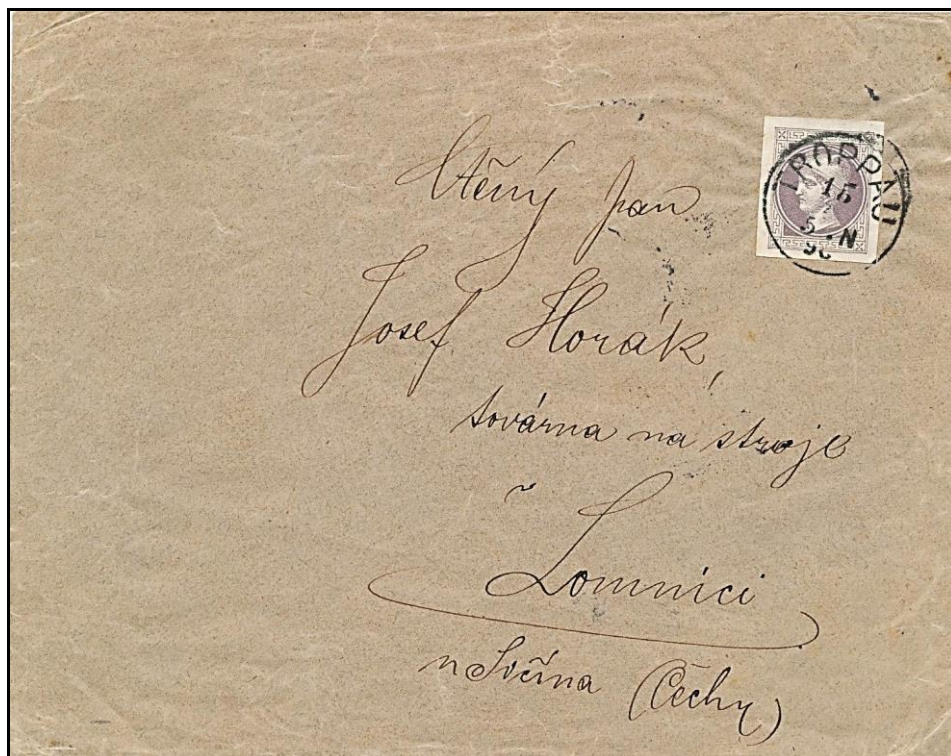 TROPPAU
15
5
N
Ctěný pan
Josef Horák,
továrna na stroje
v
Lomnici
u Jičína (Čechy)